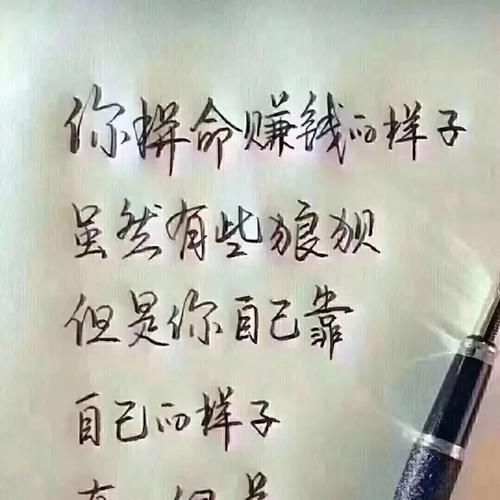 你拼命赚钱的样子
虽然有些狼狈
但是你自己靠
自己的样子